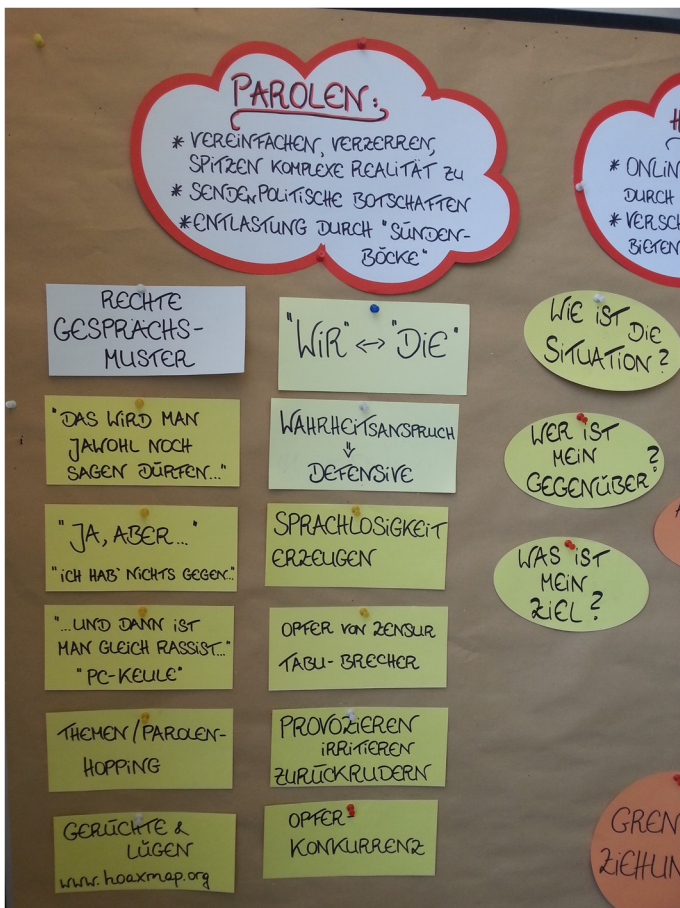 PAROLEN:
* VEREINFACHEN, VERZERREN,
SPITZEN KOMPLEXE REALITÄT ZU
* SENDEN POLITISCHE BOTSCHAFTEN
* ENTLASTUNG DURCH "SÜNDEN-
BÖCKE"
RECHTE
GESPRÄCHS-
MUSTER
"DAS WIRD MAN
JAWOHL NOCH
SAGEN DÜRFEN..."
"JA, ABER..."
"ICH HAB' NICHTS GEGEN..."
"...UND DANN IST
MAN GLEICH RASSIST..."
"PC-KEULE"
THEMEN/PAROLEN-
HOPPING
GERÜCHTE &
LÜGEN
www.hoaxmap.org
"WIR" ↔ "DIE"
WAHRHEITSANSPRUCH
⇓
DEFENSIVE
SPRACHLOSIGKEIT
ERZEUGEN
OPFER VON ZENSUR
TABU-BRECHER
PROVOZIEREN
IRRITIEREN
ZURÜCKRUDERN
OPFER-
KONKURRENZ
WIE IST DIE
SITUATION?
WER IST
MEIN
GEGENÜBER?
WAS IST
MEIN
ZIEL?
* ONLIN
DURCH
* VERSCH
BIETEN
GREN
ZIEHUN